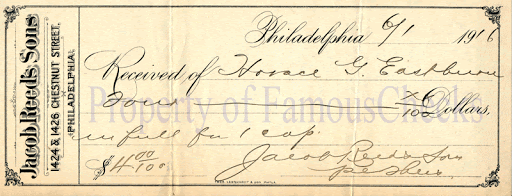 Jacob Reed's Sons
1424 & 1426 CHESTNUT STREET,
PHILADELPHIA.
Philadelphia 6/1 1916
Received of Horace G. Eastburn
Four xx/100 Dollars,
in full for 1 cap.
$4.00/100
Jacob Reed's Sons
Property of FamousChecks